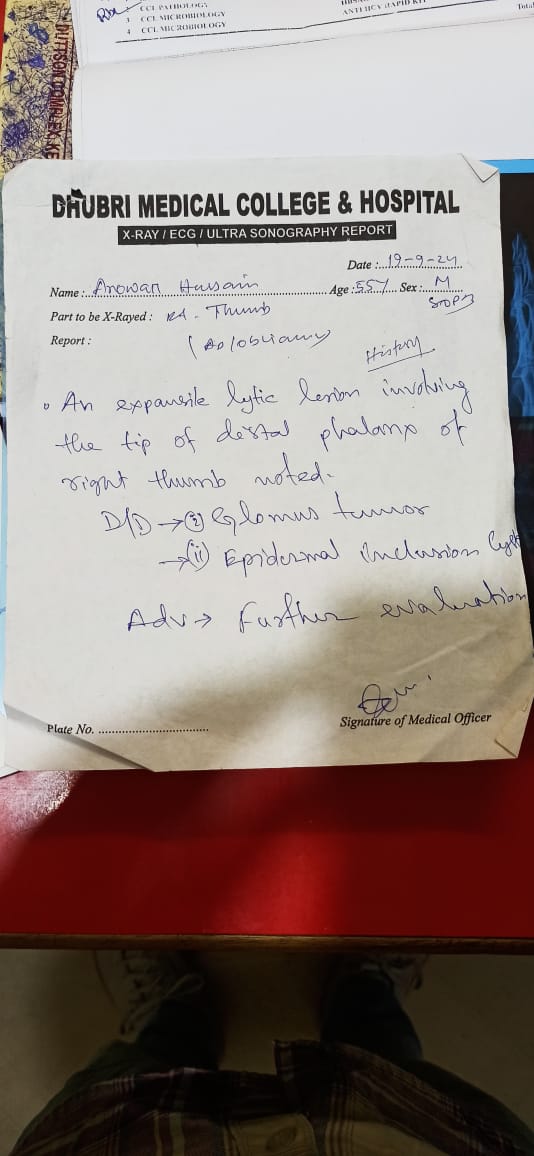 CCL PATHOLOGY
3 CCL MICROBIOLOGY
4 CCL MICROBIOLOGY
ANTI HCV RAPID KIT
Total
DHUBRI MEDICAL COLLEGE & HOSPITAL
X-RAY / ECG / ULTRA SONOGRAPHY REPORT
Date : 19-9-24
Name : Anowar Hussain Age : 55Y Sex : M
Part to be X-Rayed : Rt. Thumb
Report :
History
An expansile lytic lesion involving
the tip of distal phalanx of
right thumb noted.
D/D → (i) Glomus tumor
→ (ii) Epidermal Inclusion Cyst
Adv → Further evaluation
Plate No. ....................................
Signature of Medical Officer